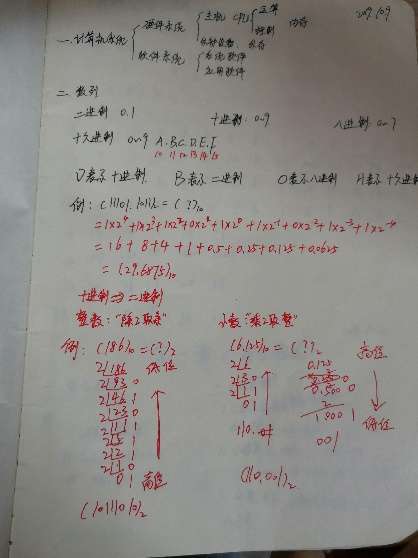 一. 计算机系统 硬件系统 主机 CPU 运算 控制 内存
软件系统 系统软件 应用软件
二. 数列
二进制 0.1 十进制: 0~9 八进制: 0~7
十六进制 0~9 A.B.C.D.E.F
10 11 12 13 14 15
D表示十进制 B表示二进制 O表示八进制 H表示十六进制
例: (11101.1011)₂ = ( ? )₁₀
=1×2⁴+1×2³+1×2²+0×2¹+1×2⁰+1×2⁻¹+0×2⁻²+1×2⁻³+1×2⁻⁴
=16+8+4+1+0.5+0.125+0.0625
=(29.6875)₁₀
十进制⇒二进制
整数: "除2取余" 小数: "乘2取整"
例: (186)₁₀=(?)₂ (6.125)₁₀ = ( ? )₂ 高位
2|186 低位 2|6 0.125
2|93 0 2|3 0
2|46 1 2|1 1 0.500 0
2|23 0 0 1 2
2|11 1 1.000 1
2|5 1 110. 低位
2|2 1 001
2|1 0
0 1 高位 (110.001)₂
(10111010)₂